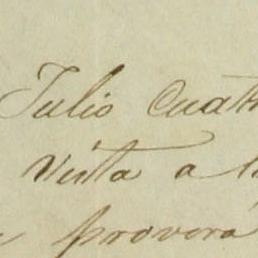 Julio Cuat
Vista a l
proverá